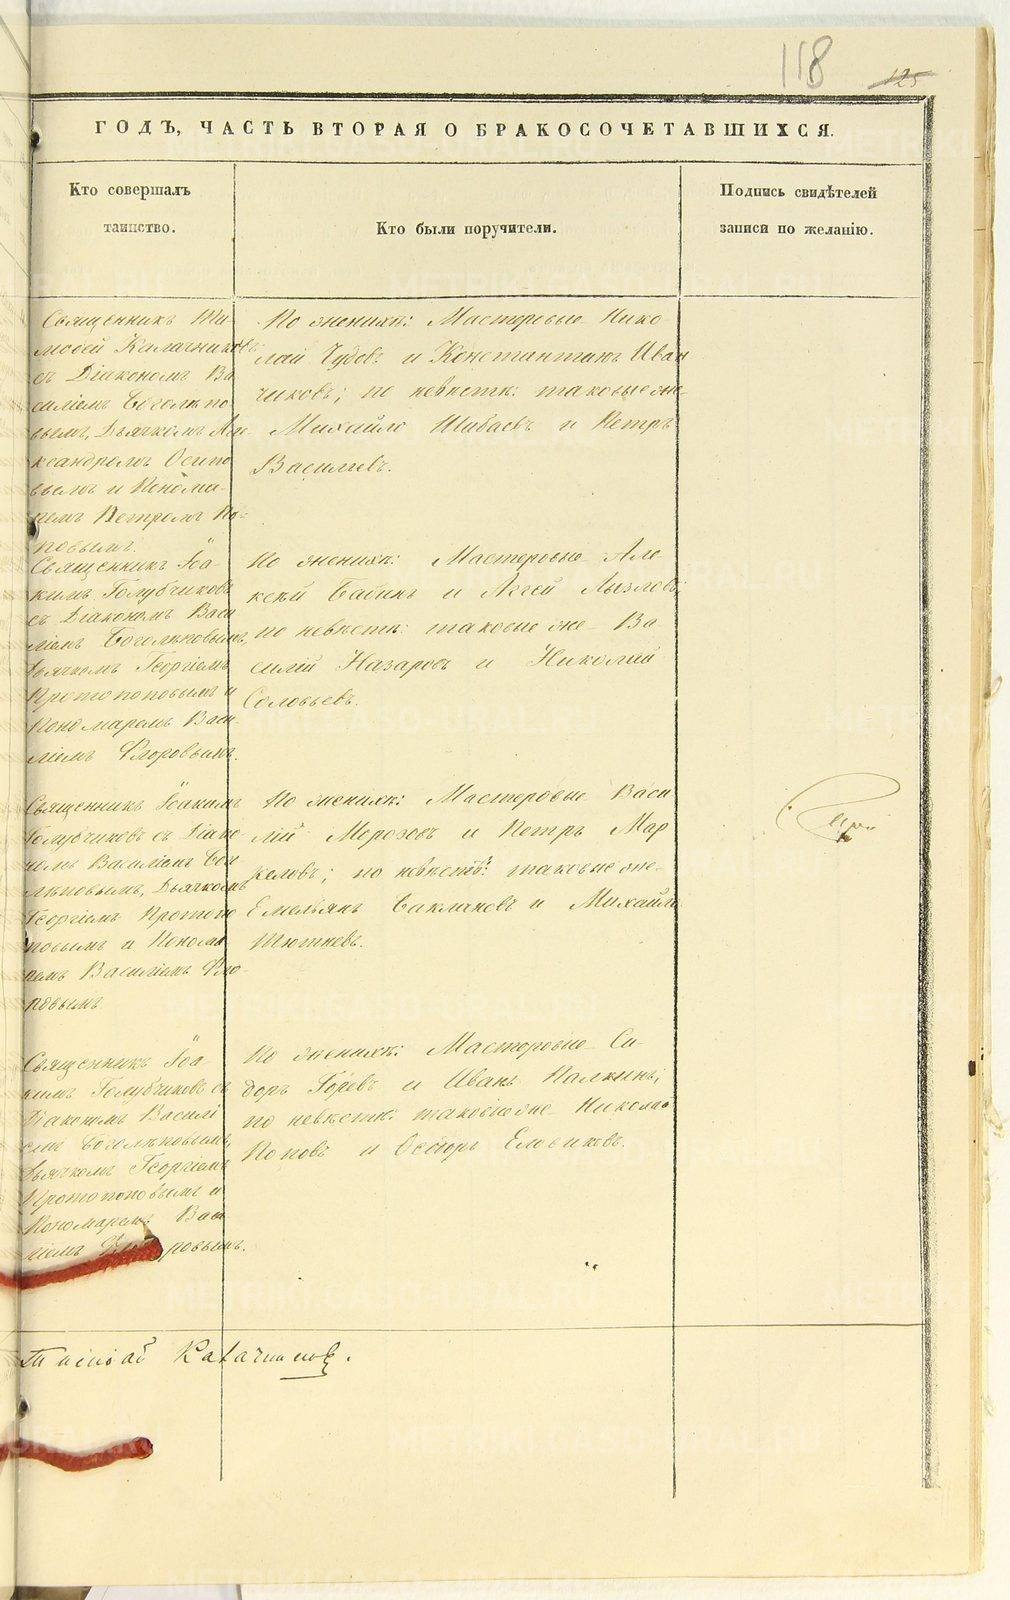 118
125
ГОДЪ, ЧАСТЬ ВТОРАЯ О БРАКОСОЧЕТАВШИХСЯ.
Кто совершалъ
таинство.
Кто были поручители.
Подпись свидѣтелей
записи по желанію.
Священникъ Ти-
моѳей Калачниковъ
съ Діакономъ Ва
силіемъ Боголѣпо
вымъ, Дьячкомъ Але
ксандромъ Осипо
вымъ и Понома-
ремъ Петромъ По-
повымъ.
По женихѣ: Мастеровые Нико
лай Чудовъ и Константинъ Иван
чиковъ; по невѣстѣ: таковые же
Михайло Шибаевъ и Петръ
Васильевъ.
Священникъ Іоа
кимъ Голубчиковъ
съ Діакономъ Васи
ліемъ Боголѣповымъ,
Дьячкомъ Георгіемъ
Протопоповымъ и
Пономаремъ Васи
ліемъ Флоровымъ.
По женихѣ: Мастеровые Але
ксѣй Бабинъ и Аггей Лызловъ;
по невѣстѣ: таковые же Ва
силій Назаровъ и Николай
Соловьевъ.
Священникъ Іоакимъ
Голубчиковъ съ Діако
номъ Василіемъ Бого
лѣповымъ, Дьячкомъ
Георгіемъ Протопо
повымъ и Понома
ремъ Василіемъ Фло
ровымъ
По женихѣ: Мастеровые Васи
лій Морозовъ и Петръ Мар
келовъ; по невѣстѣ: таковые же
Емельянъ Баклановъ и Михайло
Тютневъ.
Священникъ Іоа
кимъ Голубчиковъ съ
Діакономъ Василі
емъ Боголѣповымъ,
Дьячкомъ Георгіемъ
Протопоповымъ и
Пономаремъ Васи
ліемъ Флоровымъ.
По женихѣ: Мастеровые Си
доръ Горевъ и Иванъ Палкинъ;
по невѣстѣ: таковые же Николай
Поповъ и Ѳедоръ
Тимоѳей Калачниковъ.
METRIKI.GASO-URAL.RU